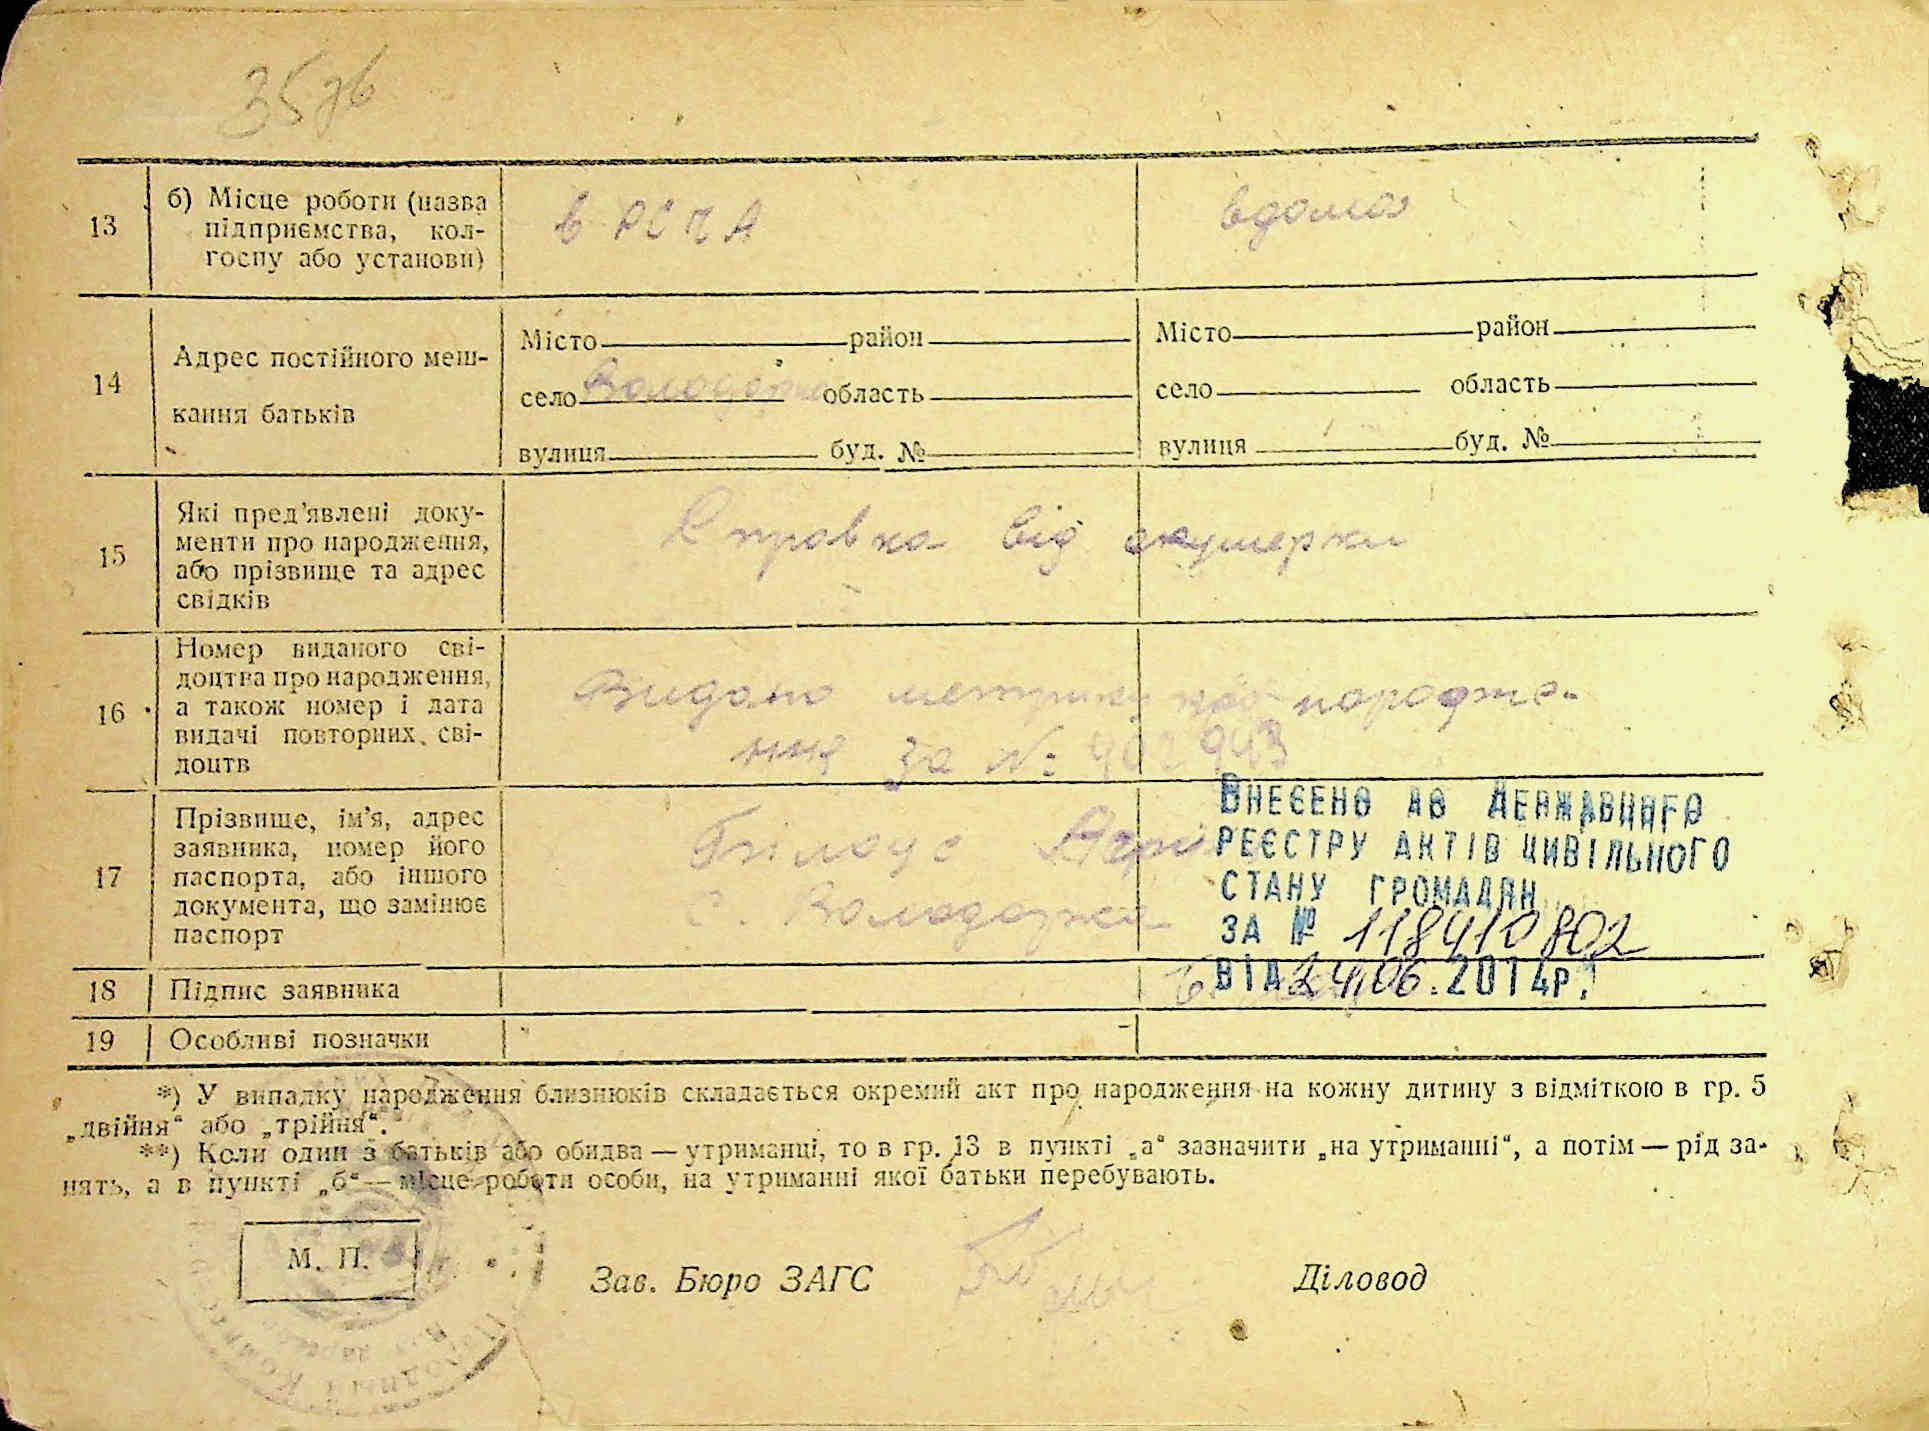 35зв
13
б) Місце роботи (назва
підприємства, кол-
госпу або установи)
в РСЧА
вдома
14
Адрес постійного меш-
кання батьків
Місто район
село Володарка область
вулиця буд. №
Місто район
село область
вулиця буд. №
15
Які пред'явлені доку-
менти про народження,
або прізвище та адрес
свідків
Справка від акушерки
16
Номер виданого сві-
доцтва про народження,
а також номер і дата
видачі повторних сві-
доцтв
Видано метрику про народже-
ння за № 902943
17
Прізвище, ім'я, адрес
заявника, номер його
паспорта, або іншого
документа, що замінює
паспорт
Білоус
с. Володарка
ВНЕСЕНО ДО ДЕРЖАВНОГО
РЕЄСТРУ АКТІВ ЦИВІЛЬНОГО
СТАНУ ГРОМАДЯН
ЗА № 118410802
ВІД 24.06.2014р.
18
Підпис заявника
19
Особливі позначки
*) У випадку народження близнюків складається окремий акт про народження на кожну дитину з відміткою в гр. 5
„двійня“ або „трійня“.
**) Коли один з батьків або обидва — утриманці, то в гр. 13 в пункті „а“ зазначити „на утриманні“, а потім — рід за-
нять, а в пункті „б“ — місце роботи особи, на утриманні якої батьки перебувають.
М. П.
Зав. Бюро ЗАГС
Діловод